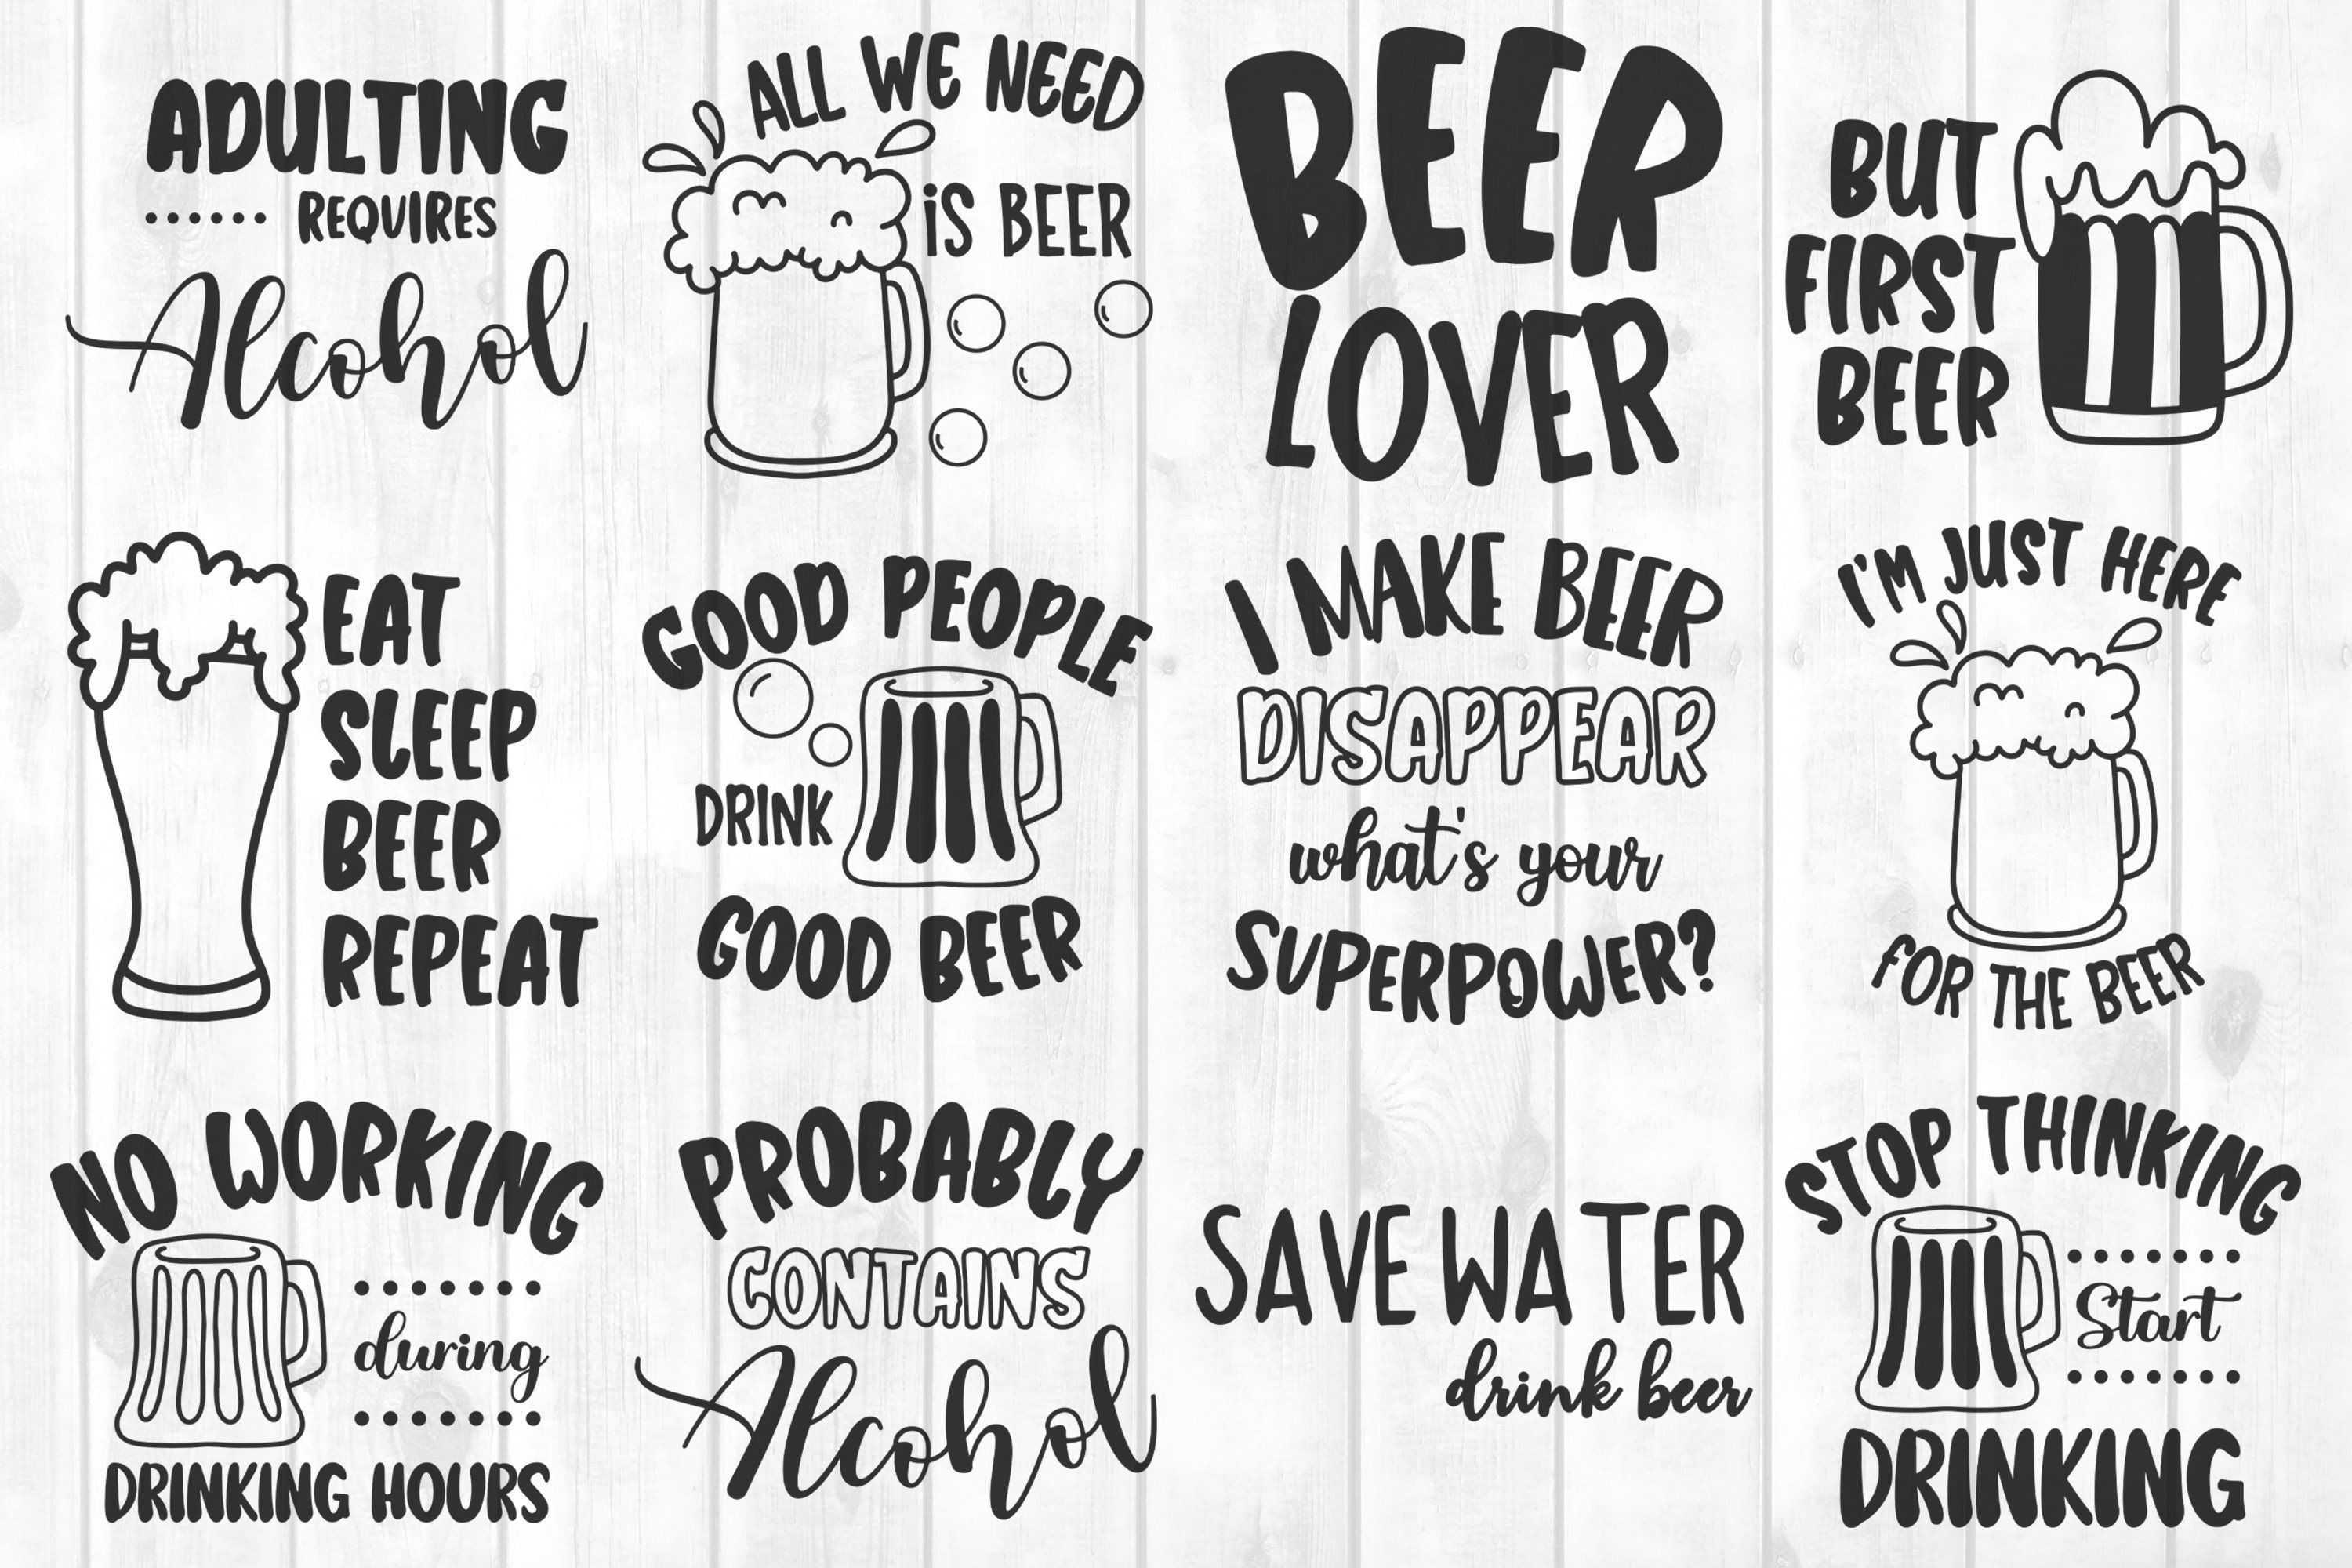 ADULTING
REQUIRES
Alcohol
ALL WE NEED
iS BEER
BEER
LOVER
BUT
FIRST
BEER
EAT
SLEEP
BEER
REPEAT
GOOD PEOPLE
DRINK
GOOD BEER
I MAKE BEER
DISAPPEAR
what's your
SUPERPOWER?
I'M JUST HERE
FOR THE BEER
NO WORKING
during
DRINKING HOURS
PROBABLY
CONTAINS
Alcohol
SAVE WATER
drink beer
STOP THINKING
Start
DRINKING